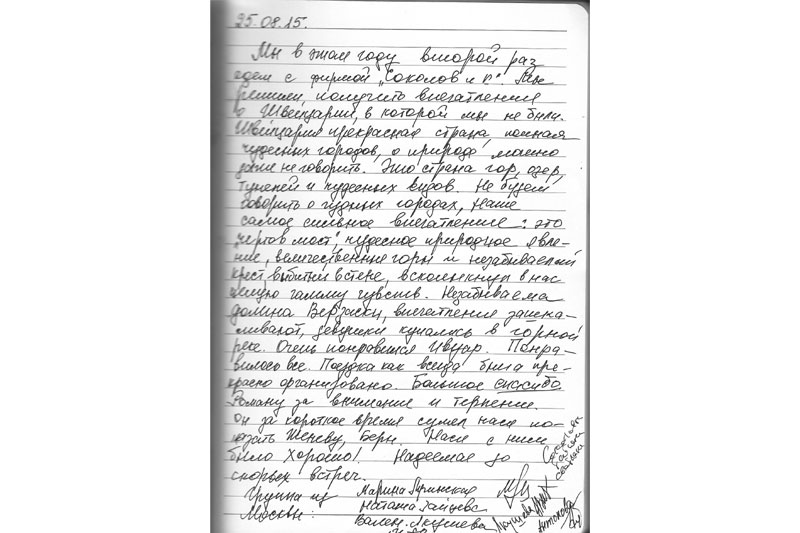 25.08.15.
Мы в этом году второй раз
едем с фирмой „Соколов и К". Мы
решили, получить впечатление
о Швейцарии, в которой мы не были.
Швейцария прекрасная страна, полная
чудесных городов, о природе можно
даже не говорить. Это страна гор, озер,
тунелей и чудесных видов. Не будем
говорить о чудных городах, наше
самое сильное впечатление: это
„чертов мост", чудесное природное явле-
ние, величественные горы и незабываемый
крест, выбитый в стене, всколыхнул в нас
целую гамму чувств. Незабываема
долина Верзаски, впечатления зашка-
ливают, девушки купались в горной
реке. Очень понравился Ивуар. Понра-
вилось все. Поездка как всегда была пре-
красно организовано. Большое спасибо
Роману за внимание и терпение.
Он за короткое время сумел нам по-
казать Женеву, Берн. Нам с ним
было хорошо! Надеемся до
скорых встреч.
Группа из Марина
Москвы: Наташа Зайцева
Вален. Якушева